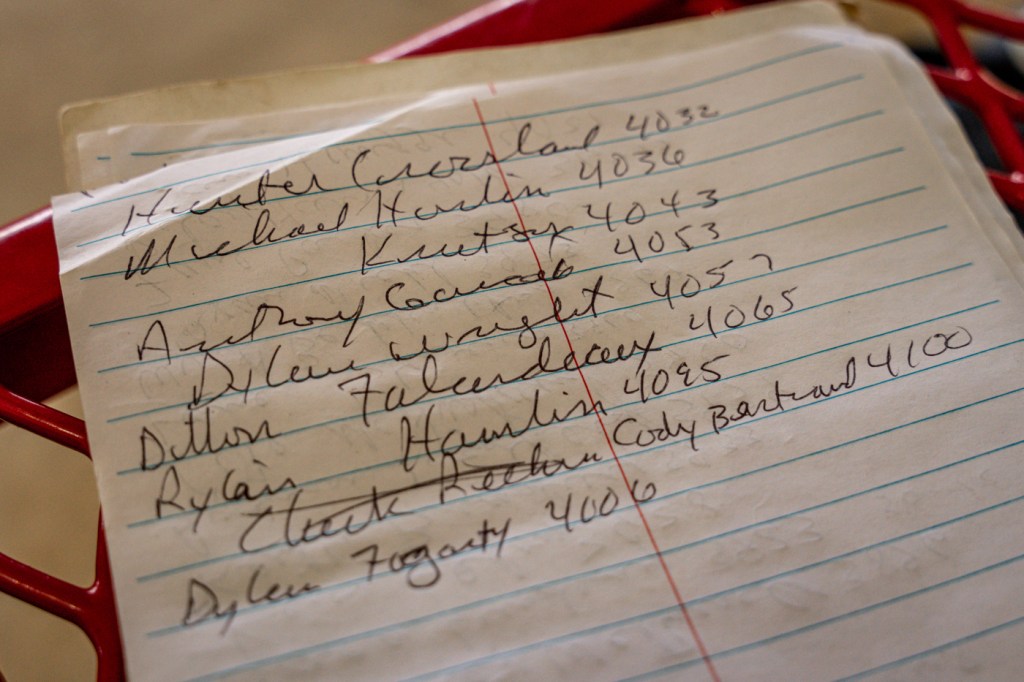 Hunter Crossland 4032
Michael Hamlin 4036
Knutson 4043
Anthony 4053
Dylan Wright 4057
Dillon Falardeaux 4065
Rylan Hamlin 4095
Chuck Cody Bertrand 4100
Dylan Fogarty 4006